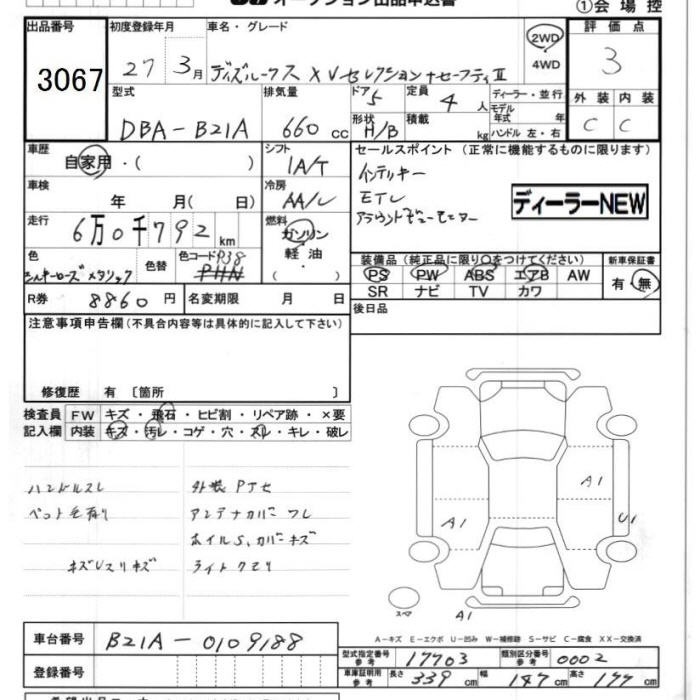 オークション出品申込書
①会場控
出品番号 初度登録年月 車名・グレード 評価点
3067 27 3月 ディズルークス XVセレクション+セーフティⅡ 2WD 4WD 3
型式 排気量 ドア 5 定員 4 人 ディーラー・並行 外装 内装
DBA-B21A 660 cc 形状 H/B 積載 kg モデル年式 年 ハンドル 左・右 C C
車歴 シフト セールスポイント (正常に機能するものに限ります)
自家用・( ) IA/T インテリキー
車検 冷房 ETC
年 月( 日) AA/C アラウンドビューモニター
ディーラーNEW
走行 6万0千792 km 燃料 ガソリン・軽油・
色 色替 色コード P38 装備品 (純正品に限り〇をつけてください) 新車保証書
PS PW ABS エアB AW 有・無
SR ナビ TV カワ
R券 8860 円 名変期限 月 日 後日品
注意事項申告欄(不具合内容等は具体的に記入して下さい)
修復歴 有 〔箇所 〕
検査員 FW キズ・飛石・ヒビ割・リペア跡・×要
記入欄 内装 キズ・汚レ・コゲ・穴・スレ・キレ・破レ
ハンドルスレ 外装 PTセ
ペット毛有り アンテナカバーワレ
ホイルS、カバーキズ
キズUスリキズ ライトクモリ
A1
A1 U1
スペア A1
A-キズ E-エクボ U-凹み W-補修跡 S-サビ C-腐食 XX-交換済
車台番号 B21A-0109188
型式指定番号 参考 17703 類別区分番号 参考 0002
登録番号
車庫証明用 参考 長さ 339 cm 幅 147 cm 高さ 177 cm